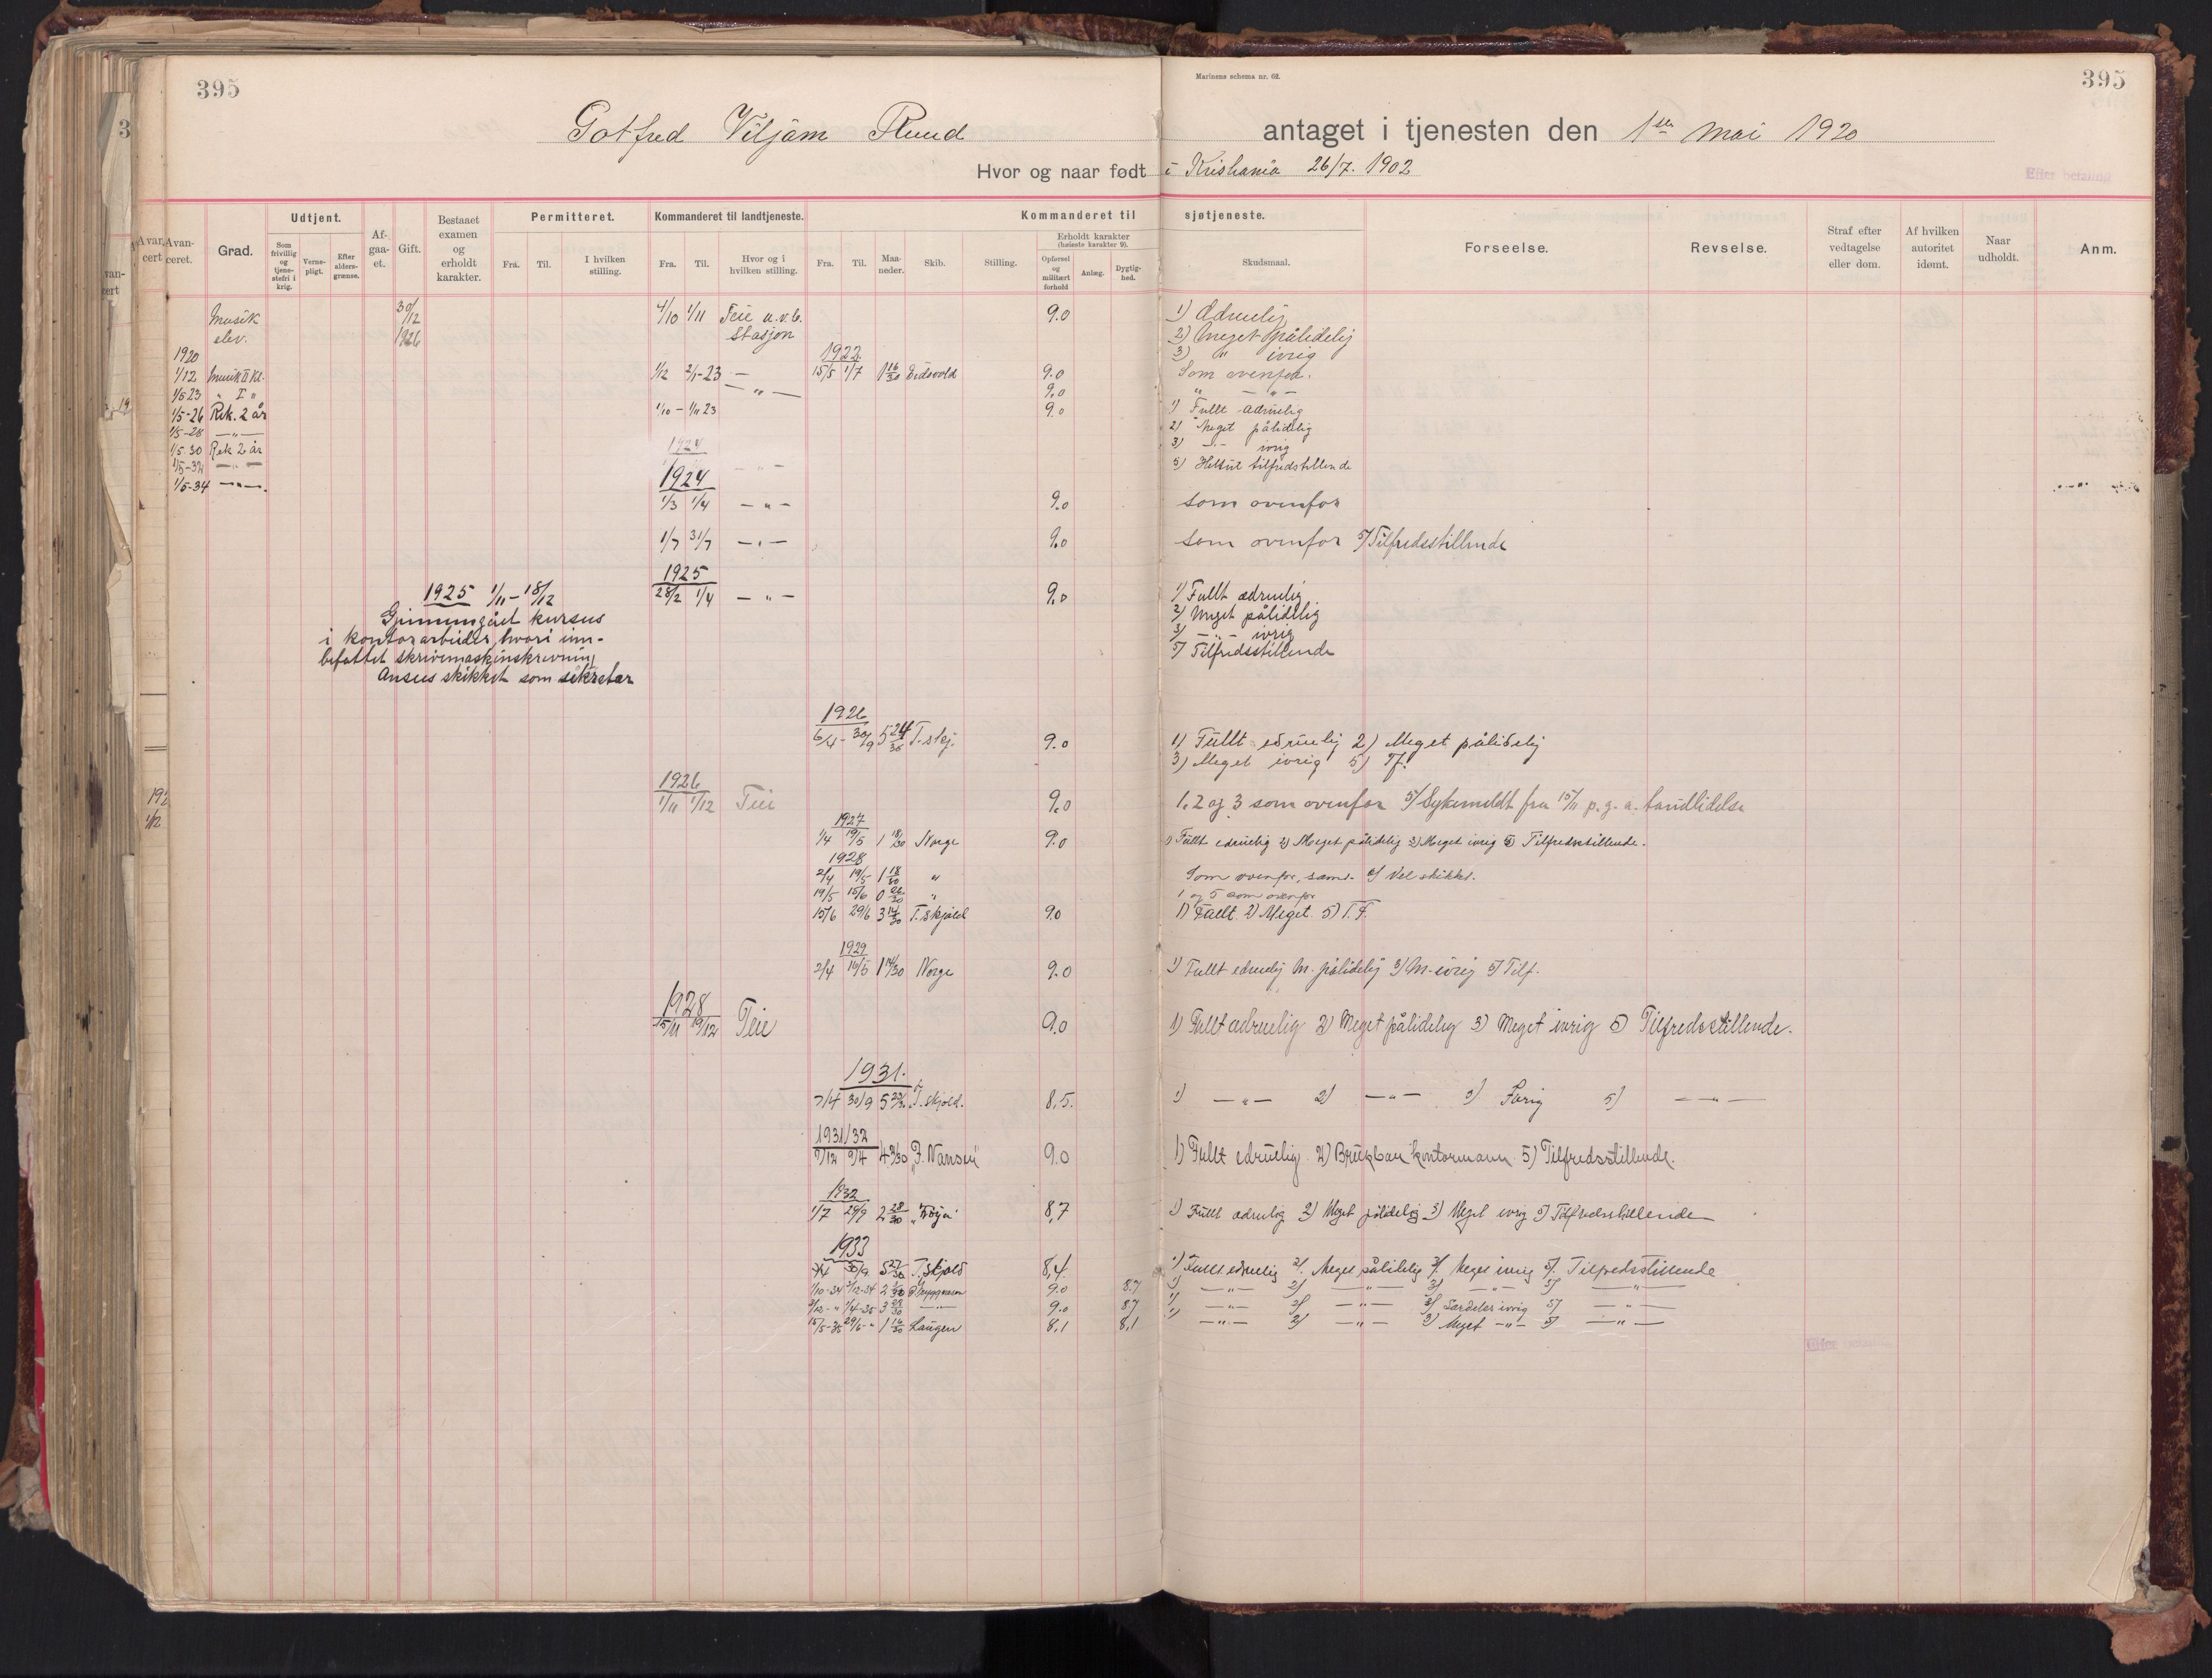 395
Marinens schema nr. 62.
395
Gotfred Viljam Ruud antaget i tjenesten den 1ste Mai 1920
Hvor og naar født i Kristiania 26/7. 1902
Efter betaling
Avan-
ceret.
Grad.
Udtjent.
Som frivillig og tjene-stefri i krig.
Verne-pligt.
Efter alders-grænse.
Af-gaa-et.
Gift.
Bestaaet examen og erholdt karakter.
Permitteret.
Fra. Til. I hvilken stilling.
Kommanderet til landtjeneste.
Fra. Til. Hvor og i hvilken stilling.
Kommanderet til sjøtjeneste.
Fra. Til. Maa-neder. Skib. Stilling.
Erholdt karakter (høieste karakter 9).
Opførsel og militært forhold
Anlæg.
Dygtig-hed.
Skudsmaal.
Forseelse.
Revselse.
Straf efter vedtagelse eller dom.
Af hvilken autoritet idømt.
Naar udholdt.
Anm.
Musik elev. 30/12 1926 4/10 1/11 Teie u.v.b. Stasjon 9.0 1) Ædruelig
2) Meget pålidelig
3) " ivrig
1920
1/12 Musik II Kl. 1/12 2/1-23 — 1922. 15/5 1/7 1 16/30 Eidsvold 9.0 Som ovenfor.
1/5 23 " I " — " — 9.0 " — " —
1/5-26 Rek. 2 år 1/10 - 1/11 23 9.0 1) Fullt ædruelig
1/5-28 — " — 2) Meget pålidelig
1/5-30 Rek 2 år 1924 3) — " — ivrig
1/5-32 — " — 5) Helt ut tilfredstillende
1/5-34 — " —.
1924
1/3 1/4 — " — 9.0 som ovenfor
1/7 31/7 — " — 9.0 som ovenfor 5) Tilfredsstillende
1925
28/2 1/4 — " — 9.0 1) Fullt ædruelig
2) Meget pålidelig
3) — " — ivrig
5) Tilfredsstillende
1925 1/11 - 18/12
Gjennemgått kursus
i kontorarbeider, hvori inn-
befattet skrivemaskinskrivning
Ansees skikket som sekretær
1926
6/4 - 30/9 5 24/30 T.skj. 9.0 1) Fullt edruelig 2) Meget pålidelig
3) Meget ivrig 5) Tf.
1926
1/11 1/12 Teie 9.0 1, 2 og 3 som ovenfor 5) Sykemeldt fra 15/11 p.g.a. tannlidelse
1927
1/4 19/5 1 18/30 Norge 9.0 1) Fullt edruelig 2) Meget pålidelig 3) Meget ivrig 5) Tilfredsstillende.
1928
2/4 19/5 1 18/30 " Som ovenfor, samt. Vel skikket.
19/5 15/6 0 26/30 " 1 og 5 som ovenfor
15/6 29/6 3 14/30 T.skjold 9.0 1) Fullt 2) Meget. 5) T.F.
1929
2/4 15/5 1 14/30 Norge 9.0 1) Fullt edruelig M. pålidelig 3) M. ivrig 5) Tilf.
1928
15/11 19/12 Teie 9.0 1) Fullt ædruelig 2) Meget pålidelig 3) Meget ivrig 5) Tilfredsstillende.
1931.
7/4 30/9 5 T.skjold. 8,5. 1) — " — 2) — " — 3) Ivrig 5) — " —
1931/32
9/4 "F. Nansen" 9.0 1) Fullt edruelig 2) Brukbar kontormann 5) Tilfredsstillende.
1932
1/7 29/9 2 28/30 "Frøya" 8,7 1) Fullt ædruelig 2) Meget pålidelig 3) Meget ivrig 5) Tilfredsstillende
1933
30/9 5 27/30 T.skjold 8,4. 1) Fullt edruelig 2) Meget pålidelig 3) Meget ivrig 5) Tilfredsstillende
1/10-34 2/12-34 2 Tryggvason 9.0 8.7 1) — " — 2) — " — 3) — " — 5) — " —
2/12- " 1/4-35 3 29/30 — " — 9.0 8.7 1) — " — 2) — " — 3) Særdeles ivrig 5) — " —
15/5-35 29/6- " 1 16/30 Laugen 8,1 8,1 1) — " — 2) — " — 3) Meget — " — 5) — " —